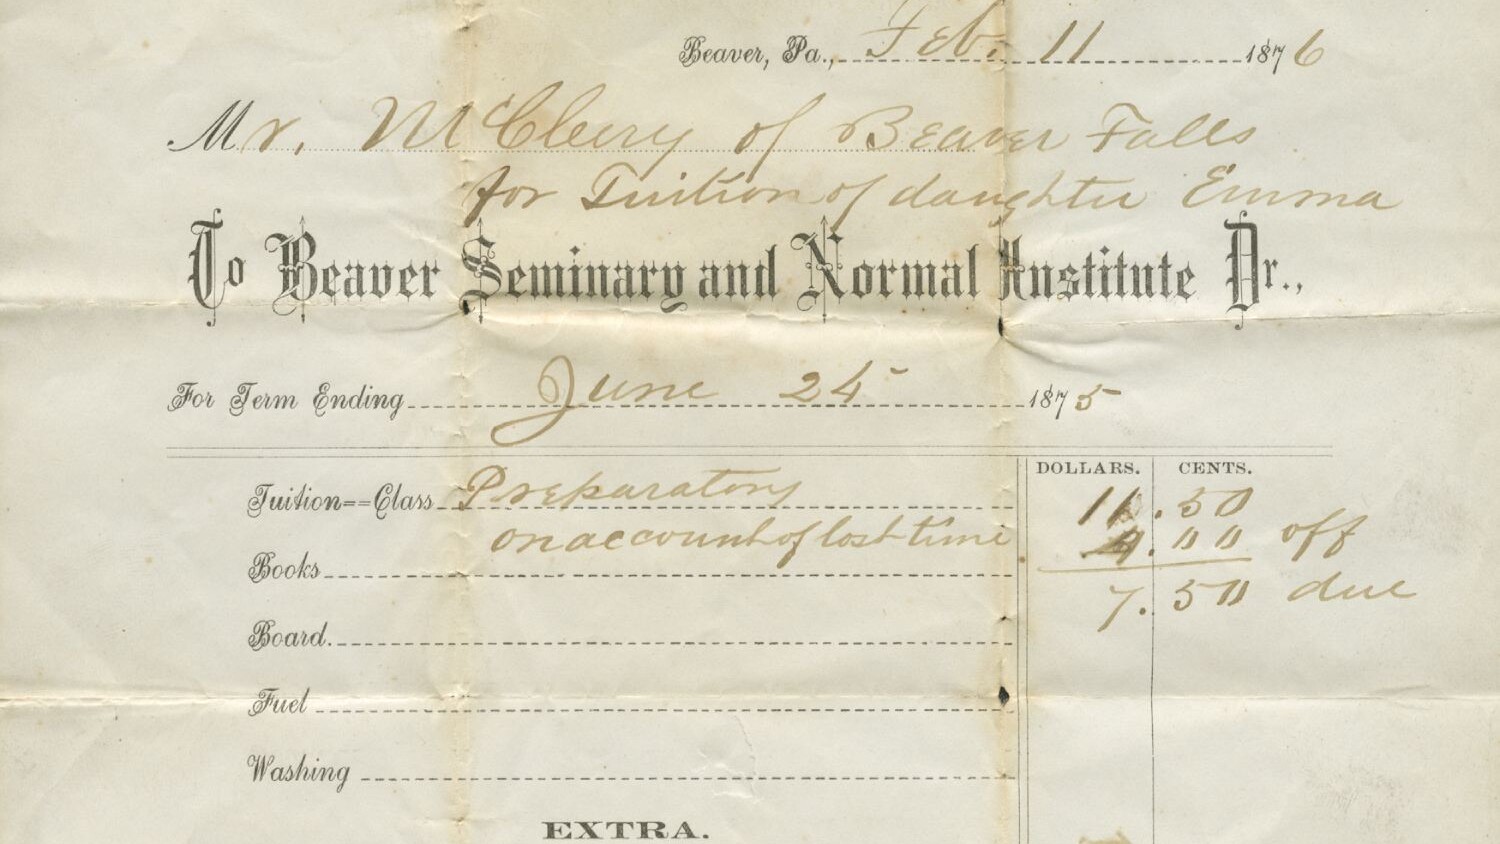 Beaver, Pa., Feb. 11 1876
Mr. McCleery of Beaver Falls
for Tuition of daughter Emma
To Beaver Seminary and Normal Institute Dr.,
For Term Ending June 24 1875
DOLLARS. CENTS.
Tuition==Class Preparatory 11.50
on account of lost time 4.00 off
Books 7.50 due
Board.
Fuel
Washing
EXTRA.